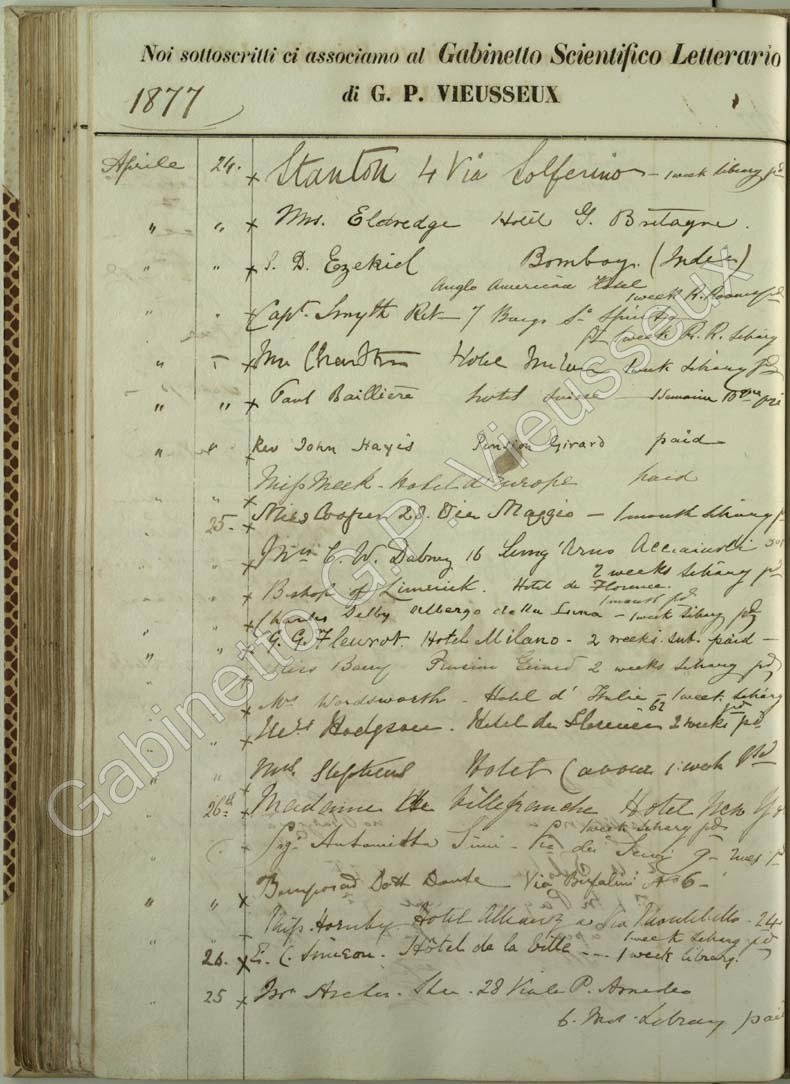 Noi sottoscritti ci associamo al Gabinetto Scientifico Letterario
di G. P. VIEUSSEUX
1877
Aprile 24. x Stanton 4 Via Solferino - 1 week library pd
" " x Mrs. Eldredge Hotel G. Bretagne.
" " x S. D. Ezekiel Bombay. (India)
Anglo American Hotel
1 week R. Rooms pd
" x Capt. Smyth 7 Borgo
pd 1 week R. R. Library
" x Hotel Milan 1 week Library pd
" " x Paul Baillière hotel Suisse - 1 Semaine
" " Rev John Hayes Pension Girard paid
" x Miss Meek - Hotel d'Europe paid
25. x Miss Cooper 28. Via Maggio - 1 month library
" x Mrs C. W. Dabney 16 Lung'Arno Acciaiuoli
2 weeks Library pd
" x Bishop of Limerick. Hotel de Florence.
1 month pd
" x Charles Selby Albergo della Luna - 1 week library pd
" x G. G. Fleurot. Hotel Milano - 2 weeks sub. paid -
" Miss Barry Pension Girard 2 weeks Library pd
" x Mrs Wordsworth - Hotel d'Italie - 1 week Library
pd
" x Hodgson. Hotel de Florence 62 2 weeks pd
" " Mrs Stephens Hotel Cavour 1 week pd
26th x Madame de Villefranche Hotel New
1 week library pd
" Sigra Antonietta -
x Dott Dante Via Bufalini No 6 -
" " Miss Hornby Hotel a Via Montebello - 24
1 week Library pd
" 26. x E. C. Simeon. Hôtel de la Ville --- 1 week library.
" 25 x Mrs Archer. 28 Viale P. Amedeo
6. Mos. Library paid
Gabinetto G.P. Vieusseux